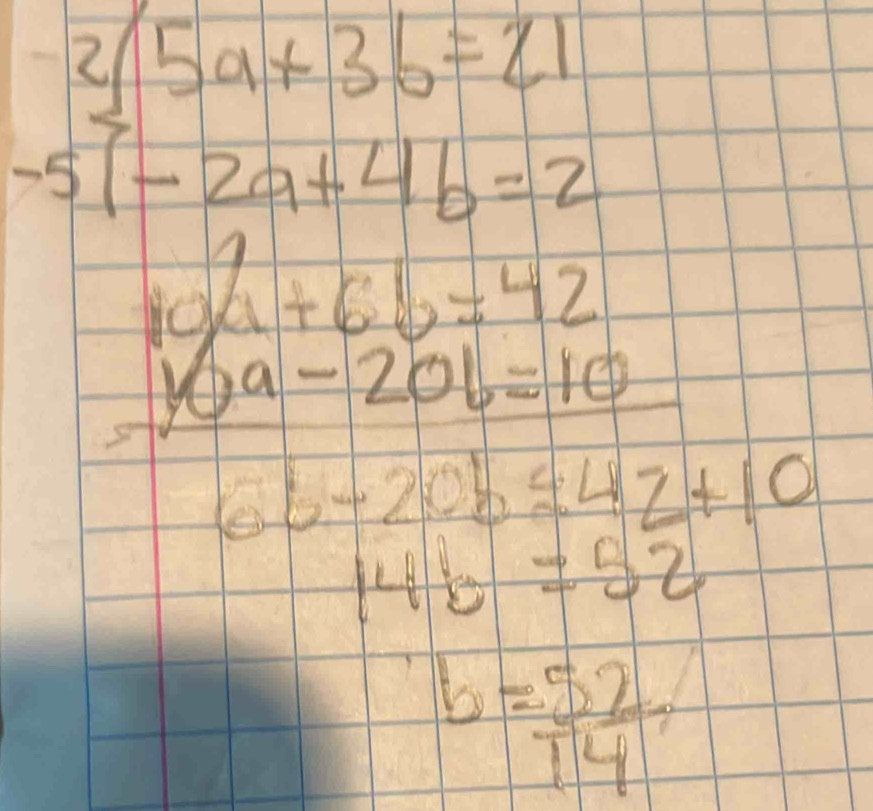 -2 { 5a + 3b = 21
-5 { - 2a + 4b = 2
10a + 6b = 42
10a - 20b = 10
6b - 20b = 42 + 10
14b = 52
b = 52/14